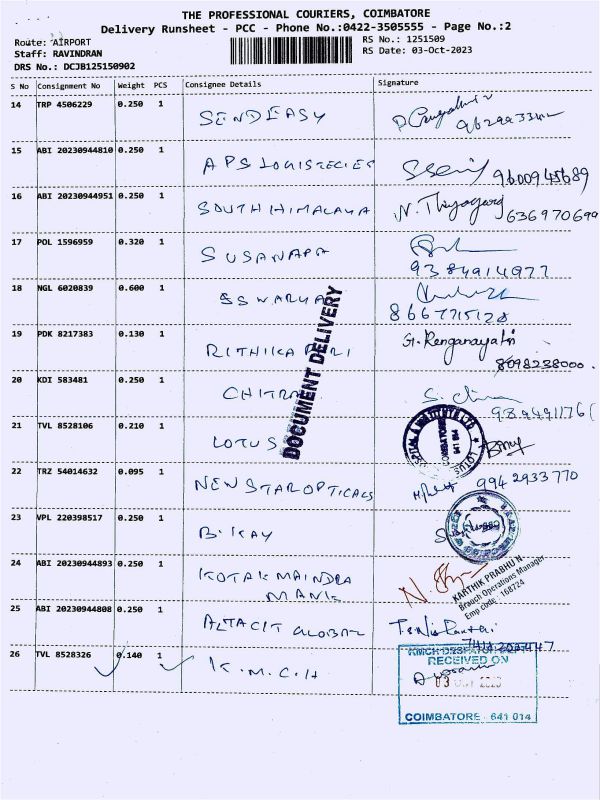 THE PROFESSIONAL COURIERS, COIMBATORE
Delivery Runsheet - PCC - Phone No.:0422-3505555 - Page No.:2
Route: AIRPORT
Staff: RAVINDRAN
DRS No.: DCJB125150902
RS No.: 1251509
RS Date: 03-Oct-2023
S No Consignment No Weight PCS Consignee Details Signature
14 TRP 4506229 0.250 1 SENDEASY
15 ABI 20230944810 0.250 1 APS LOGISTECIES 9600945689
16 ABI 20230944951 0.250 1 SOUTH HIMALAYA N. Thyagaraj 636970699
17 POL 1596959 0.320 1 SUSANAPA 9384914977
18 NGL 6020839 0.600 1 SSWARYA 8667715128
19 PDK 8217383 0.130 1 RITHIKA G. Renganayaki
8098238000.
20 KDI 583481 0.250 1 CHITRA
DOCUMENT DELIVERY
21 TVL 8528106 0.210 1 LOTUS
HOSPITAL & INSTITUTE LTD LOTUS COIMBATORE 641 014
22 TRZ 54014632 0.095 1 NEW STAR OPTICALS 9942933770
23 VPL 220398517 0.250 1 B. KAY
24 ABI 20230944893 0.250 1 KOTAK MAINDRA
MANK
KARTHIK PRABHU N
Branch Operations Manager
Emp code : 168724
25 ABI 20230944808 0.250 1 ALTACIT GLOBAL
26 TVL 8528326 0.140 1 K.M.C.H
KMCH DESPATCH DEPT
RECEIVED ON
03 OCT 2023
COIMBATORE - 641 014